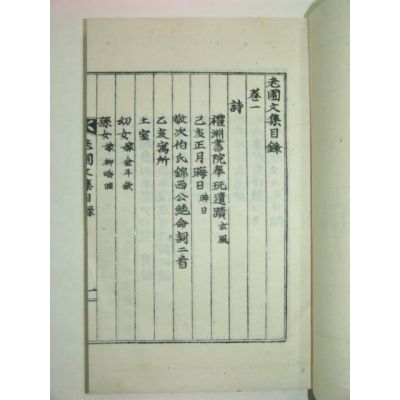 老圃文集目錄
卷一
詩
禮洲書院奉玩遺蹟 玄風
己亥正月晦日 晬日
敬次伯氏錦西公絶命詞二首
乙亥寓所
土室
幼女嫁 金斗欽
孫女嫁
老圃文集目錄
一